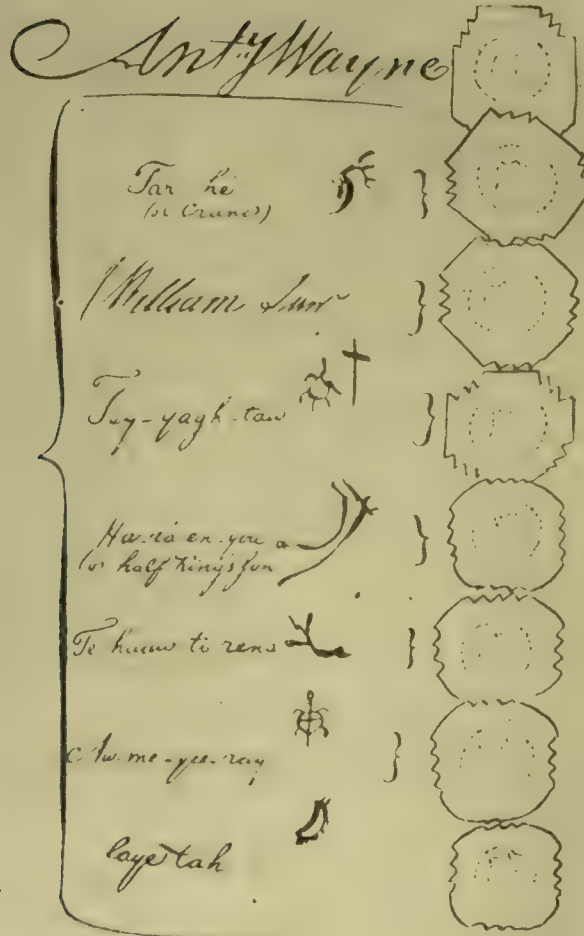 Anty Wayne
Tar hé
(or Crane)
William
Tey-yagh-taw
Ha-ro en-you
(or half King's son
Te haaw to rens
Aw-me-yee-ray
Stayetah